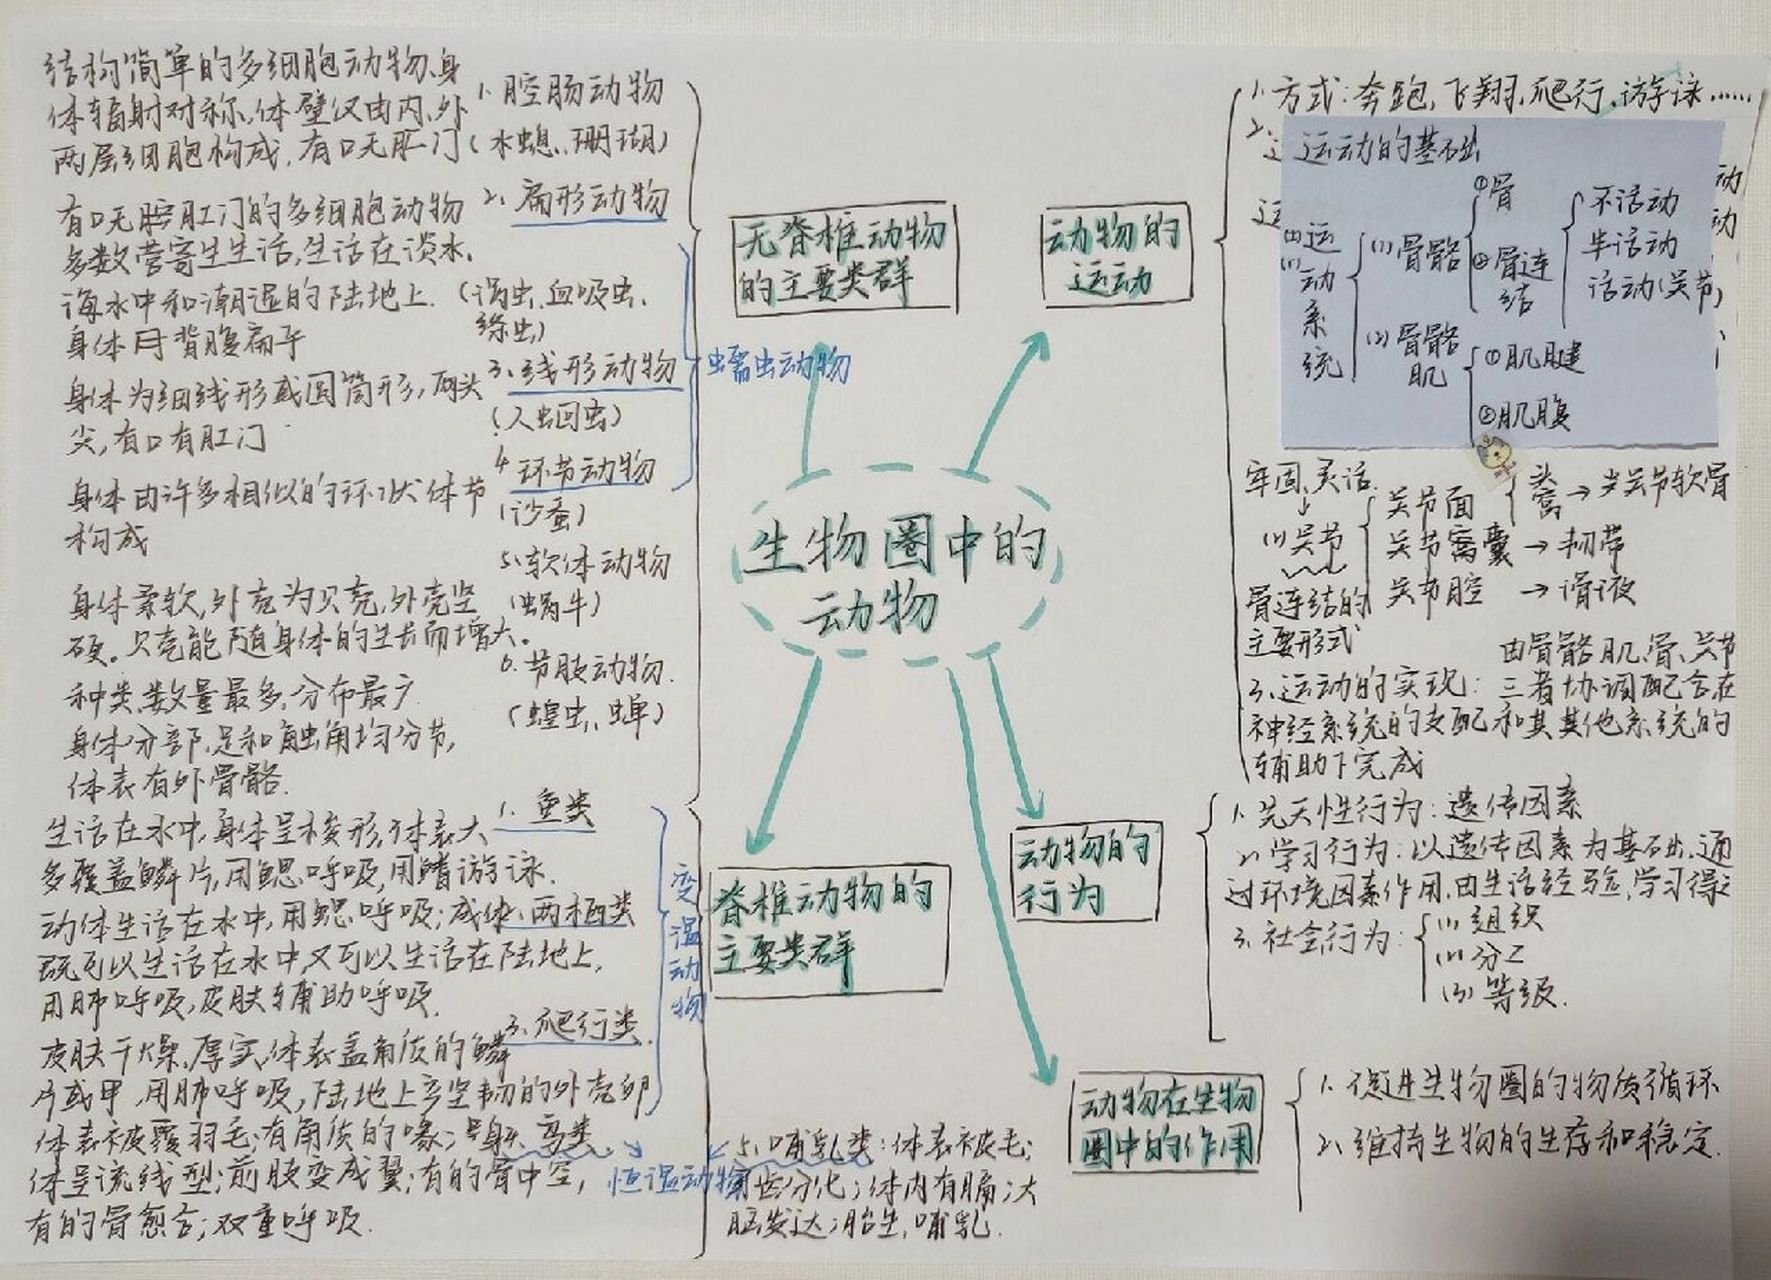 生物圈中的
动物
无脊椎动物
的主要类群
结构简单的多细胞动物、身
体辐射对称,体壁仅由内、外
两层细胞构成,有口无肛门
1.腔肠动物
(水螅、珊瑚)
有口无肛门的多细胞动物
多数营寄生生活,生活在淡水、
海水中和潮湿的陆地上.
身体背腹扁平
2.扁形动物
(涡虫、血吸虫、
绦虫)
身体为细线形或圆筒形,两头
尖,有口有肛门
3.线形动物
(人虫回虫)
身体由许多相似的环状体节
构成
4环节动物
(沙蚕)
蠕虫动物
身体柔软,外壳为贝壳,外壳坚
硬。贝壳能随身体的生长而增大。
5.软体动物
(蜗牛)
种类、数量最多,分布最广
身体分部,足和触角均分节,
体表有外骨骼.
6.节肢动物.
(蝗虫、蝉)
脊椎动物的
主要类群
1.鱼类
生活在水中,身体呈梭形,体表大
多覆盖鳞片,用鳃呼吸,用鳍游泳.
动体生活在水中,用鳃呼吸;成体、两栖类
既可以生活在水中又可以生活在陆地上,
用肺呼吸,皮肤辅助呼吸.
3.爬行类
皮肤干燥、厚实,体表盖角质的鳞
片或甲,用肺呼吸,陆地上产坚韧的外壳卵
变温动物
体表被覆羽毛;有角质的喙;身 鸟类
体呈流线型;前肢变成翼;有的骨中空,
有的骨愈合;双重呼吸.
恒温动物
5.哺乳类:体表被毛;
齿分化;体内有膈;大
脑发达;胎生,哺乳.
动物的
运动
1.方式:奔跑、飞翔、爬行、游泳……
2.
运动的基础
(1)运动系统
(1)骨骼
①骨
②骨连结
不活动
半活动
活动(关节)
(2)骨骼肌
①肌腱
②肌腹
牢固、灵活.
(1)关节
骨连结的
主要形式
关节面
头
窝
→关节软骨
关节窝囊→韧带
关节腔→滑液
3.运动的实现:由骨骼肌、骨、关节
三者协调配合在
神经系统的支配和其其他系统的
辅助下完成
动物的
行为
1.先天性行为:遗传因素
2.学习行为:以遗传因素为基础,通
过环境因素作用,由生活经验,学习得
3.社会行为:
(1)组织
(2)分工
(3)等级.
动物在生物
圈中的作用
1.促进生物圈的物质循环
2.维持生物的生存和稳定.